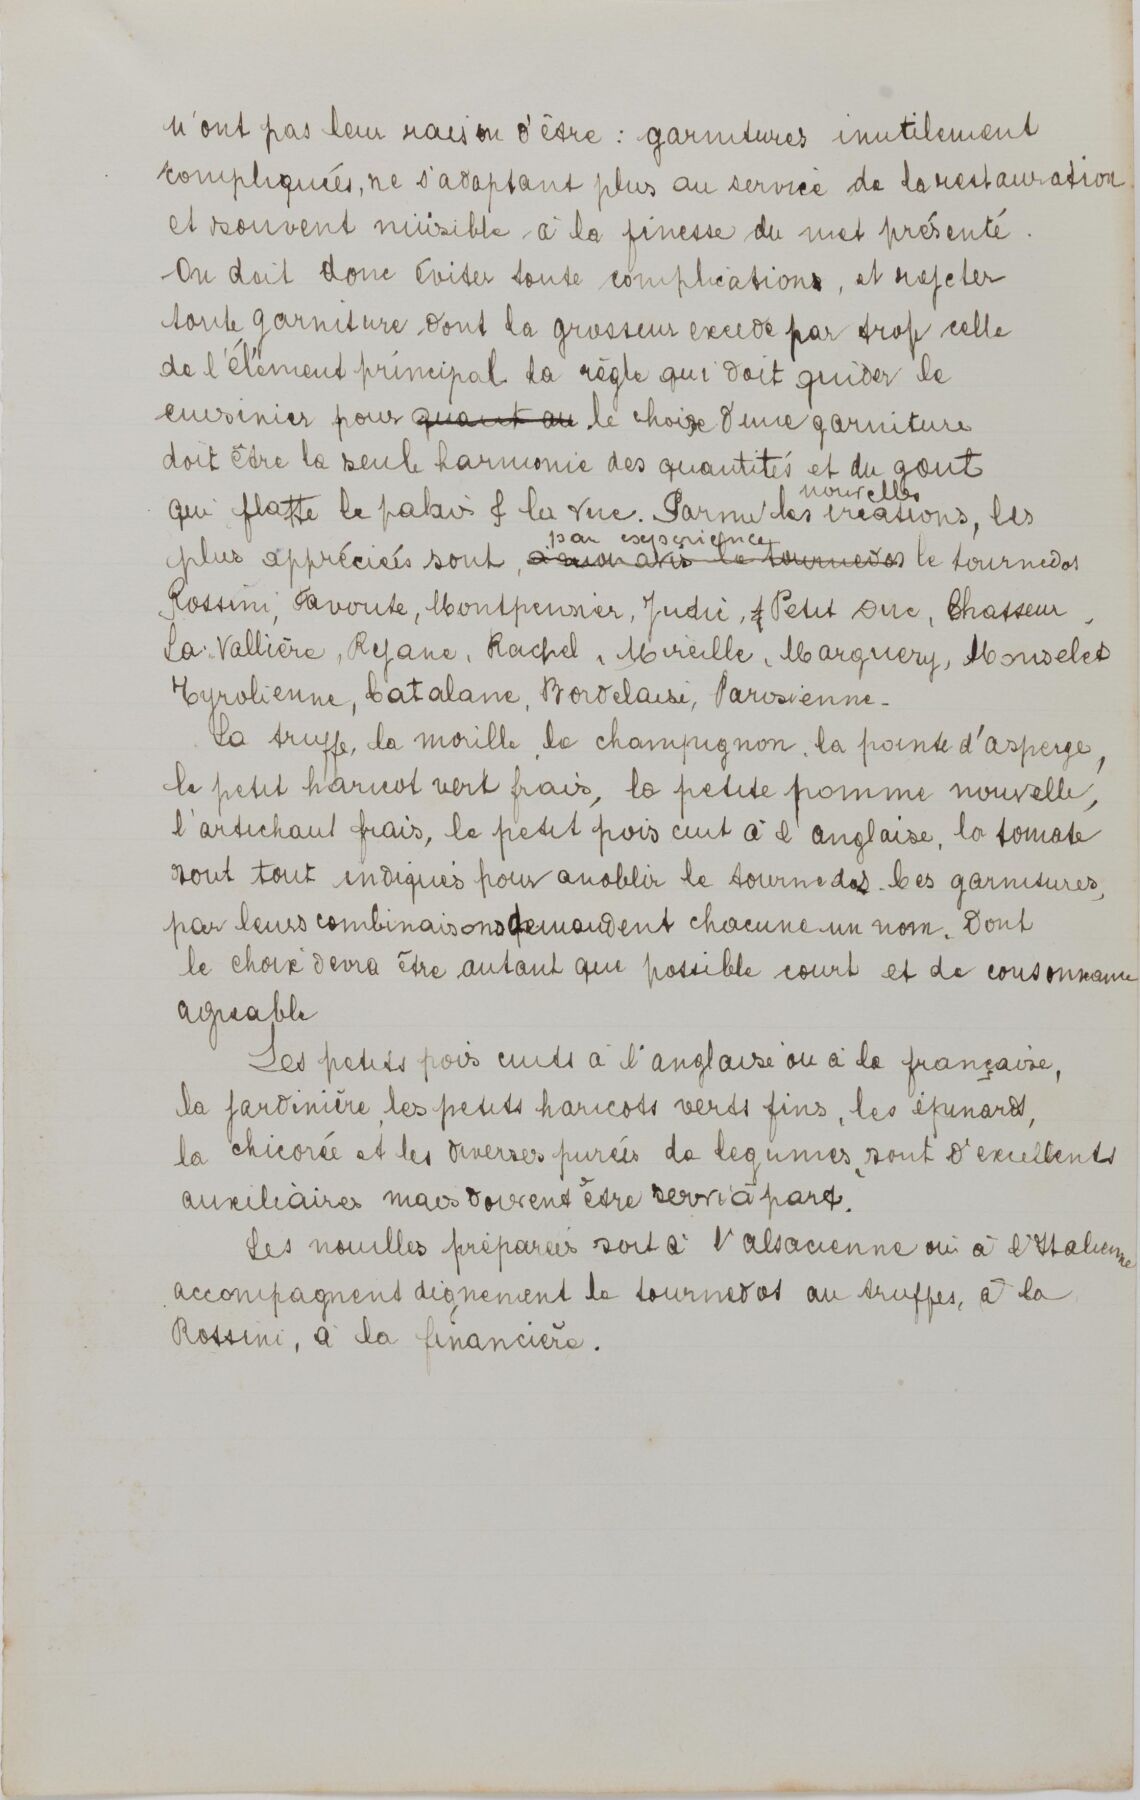 n'ont pas leur raison d'être : garnitures inutilement
compliquées, ne s'adaptant plus au service de la restauration
et souvent nuisible à la finesse du met présenté.
On doit donc éviter toute complications, et rejeter
toute garniture dont la grosseur excede par trop celle
de l'élément principal. La règle qui doit guider le
cuisinier pour quant au le choix d'une garniture
doit être la seule harmonie des quantités et du gout
nouvelles
qui flatte le palais & la vue. Parmi les créations, les
par experience
plus appréciées sont, à mon avis le tournedos le tournedos
Rossini, Favorite, Montpensier, Judic, & Petit Duc, Chasseur,
La Vallière, Rejane, Rachel, Mireille, Marguery, Monselet
Tyrolienne, Catalane, Bordelaise, Parisienne.
La truffe, la morille, le champignon, la pointe d'asperge,
le petit haricot vert frais, la petite pomme nouvelle,
l'artichaut frais, le petit pois cuit à l'anglaise, la tomate
sont tout indiqués pour anoblir le tournedos. Ces garnitures,
par leurs combinaisons demandent chacune un nom. Dont
le choix devra être autant que possible court et de consonnance
agreable
Les petits pois cuits à l'anglaise ou à la française,
la jardinière, les petits haricots verts fins, les épinards,
la chicorée et les diverses purées de legumes, sont d'excellents
auxiliaires mais doivent être servi à part.
Les nouilles préparées soit à l'alsacienne ou à l'Italienne
accompagnent dignement le tournedos au truffes, à la
Rossini, à la financière.